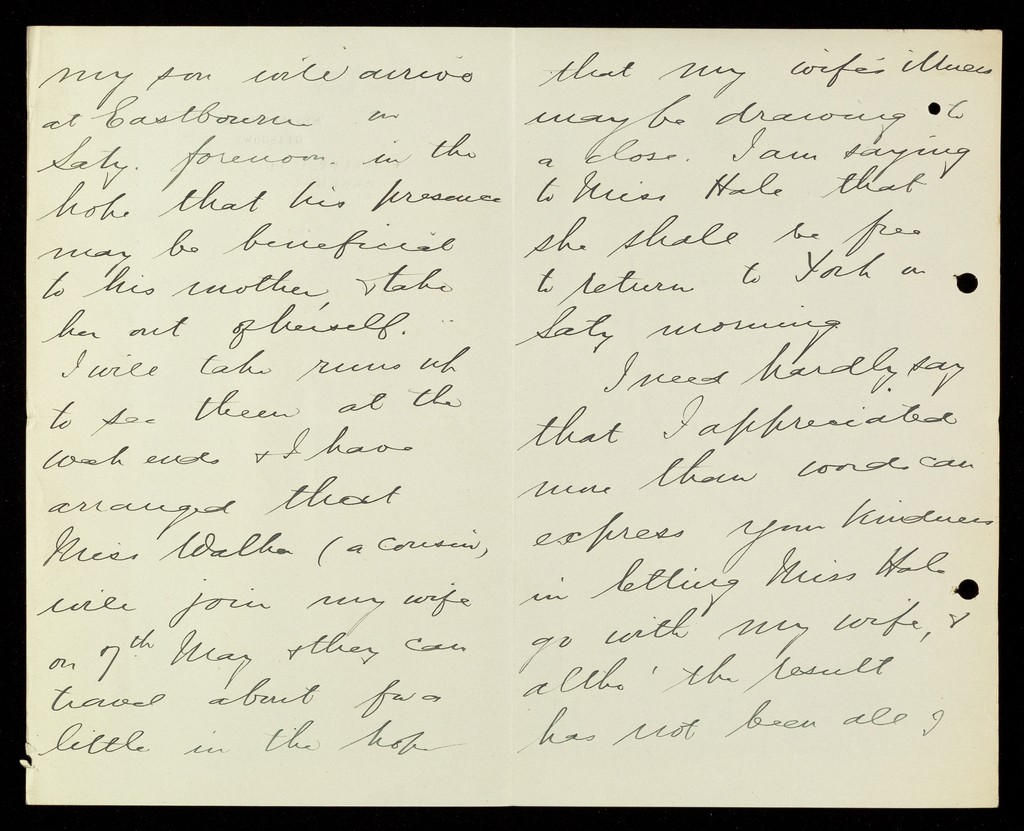 my son will arrive
at Eastbourne on
Saty. forenoon. in the
hope that his presence
may be beneficial
to his mother, & take
her out of herself.
I will take runs up
to see them at the
week ends & I have
arranged that
Miss Walker (a cousin,
will join my wife
on 7th May & they can
travel about for a
little in the hope
that my wife's illness
may be drawing to
a close. I am saying
to Miss Hale that
she shall be free
to return to York on
Saty morning
I need hardly say
that I appreciated
more than words can
express your kindness
in letting Miss Hale
go with my wife, &
altho' the result
has not been all I